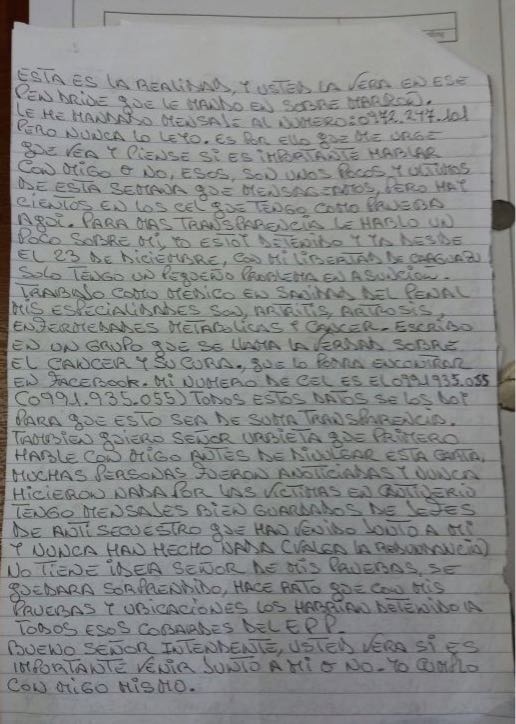 ESTA ES LA REALIDAD, Y USTED LA VERA EN ESE
PENDRIDE QUE LE MANDO EN SOBRE MARRON.
LE HE MANDADO MENSAJE AL NUMERO: 0972.247.101
PERO NUNCA LO LEYO. ES POR ELLO QUE ME URGE
QUE VEA Y PIENSE SI ES IMPORTANTE HABLAR
CON MIGO O NO, ESOS, SON UNOS POCOS Y ULTIMOS
DE ESTA SEMANA QUE MENSAGEAMOS, PERO HAY
CIENTOS EN LOS CEL QUE TENGO COMO PRUEBA
AQUI. PARA MAS TRANSPARENCIA LE HABLO UN
POCO SOBRE MI, YO ESTOI DETENIDO Y YA DESDE
EL 23 DE DICIEMBRE, CON MI LIBERTAD DE CAAGUAZU
SOLO TENGO UN PEQUEÑO PROBLEMA EN ASUNCION.
TRABAJO COMO MEDICO EN SANIDAD DEL PENAL
MIS ESPECIALIDADES SON, ARTRITIS, ARTROSIS,
ENFERMEDADES METABOLICAS Y CANCER. ESCRIBO
EN UN GRUPO QUE SE LLAMA LA VERDAD SOBRE
EL CANCER Y SU CURA. QUE LO PODRA ENCONTRAR
EN FACEBOOK. MI NUMERO DE CEL ES EL 0991.935.055
(0991.935.055) TODOS ESTOS DATOS SE LOS DOI
PARA QUE ESTO SEA DE SUMA TRANSPARENCIA.
TAMBIEN QUIERO SEÑOR URBIETA QUE PRIMERO
HABLE CON MIGO ANTES DE DIVULGAR ESTA CARTA.
MUCHAS PERSONAS FUERON ANOTICIADAS Y NUNCA
HICIERON NADA POR LAS VICTIMAS EN CAUTIVERIO
TENGO MENSALES BIEN GUARDADOS DE JEFES
DE ANTI SECUESTRO QUE HAN VENIDO JUNTO A MI
Y NUNCA HAN HECHO NADA (VALGA LA REDUNDANCIA)
NO TIENE IDEA SEÑOR DE MIS PRUEBAS, SE
QUEDARA SORPRENDIDO, HACE RATO QUE CON MIS
PRUEBAS Y UBICACIONES LOS HABRIAN DETENIDO A
TODOS ESOS COBARDES DEL EPP.
BUENO SEÑOR INTENDENTE, USTED VERA SI ES
IMPORTANTE VENIR JUNTO A MI O NO. YO CUMPLO
CON MIGO MISMO.